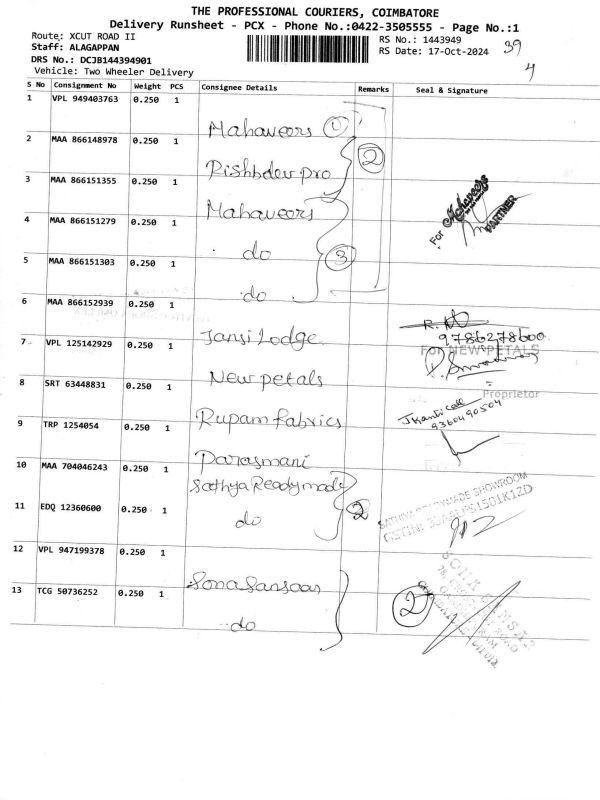 THE PROFESSIONAL COURIERS, COIMBATORE
Delivery Runsheet - PCX - Phone No.:0422-3505555 - Page No.:1
Route: XCUT ROAD II
RS No.: 1443949
39
Staff: ALAGAPPAN
RS Date: 17-Oct-2024
4
DRS No.: DCJB144394901
Vehicle: Two Wheeler Delivery
S No Consignment No Weight PCS Consignee Details Remarks Seal & Signature
1 VPL 949403763 0.250 1
Mahaveers 1
2 MAA 866148978 0.250 1
Rishbdev pro 2
3 MAA 866151355 0.250 1
Mahaveers
For Mahaveers
PARTNER
4 MAA 866151279 0.250 1
do 3
5 MAA 866151303 0.250 1
do
6 MAA 866152939 0.250 1
Jansi Lodge
9786278600
7 VPL 125142929 0.250 1
For NEW PETALS
New petals
Proprietor
8 SRT 63448831 0.250 1
Rupam fabrics
9360490504
9 TRP 1254054 0.250 1
Parasmani
10 MAA 704046243 0.250 1
Sathya Readymade
2
READYMADE SHOWROOM
11 EDQ 12360600 0.250 1
do
12 VPL 947199378 0.250 1
Sona Sansaar
13 TCG 50736252 0.250 1
2
do